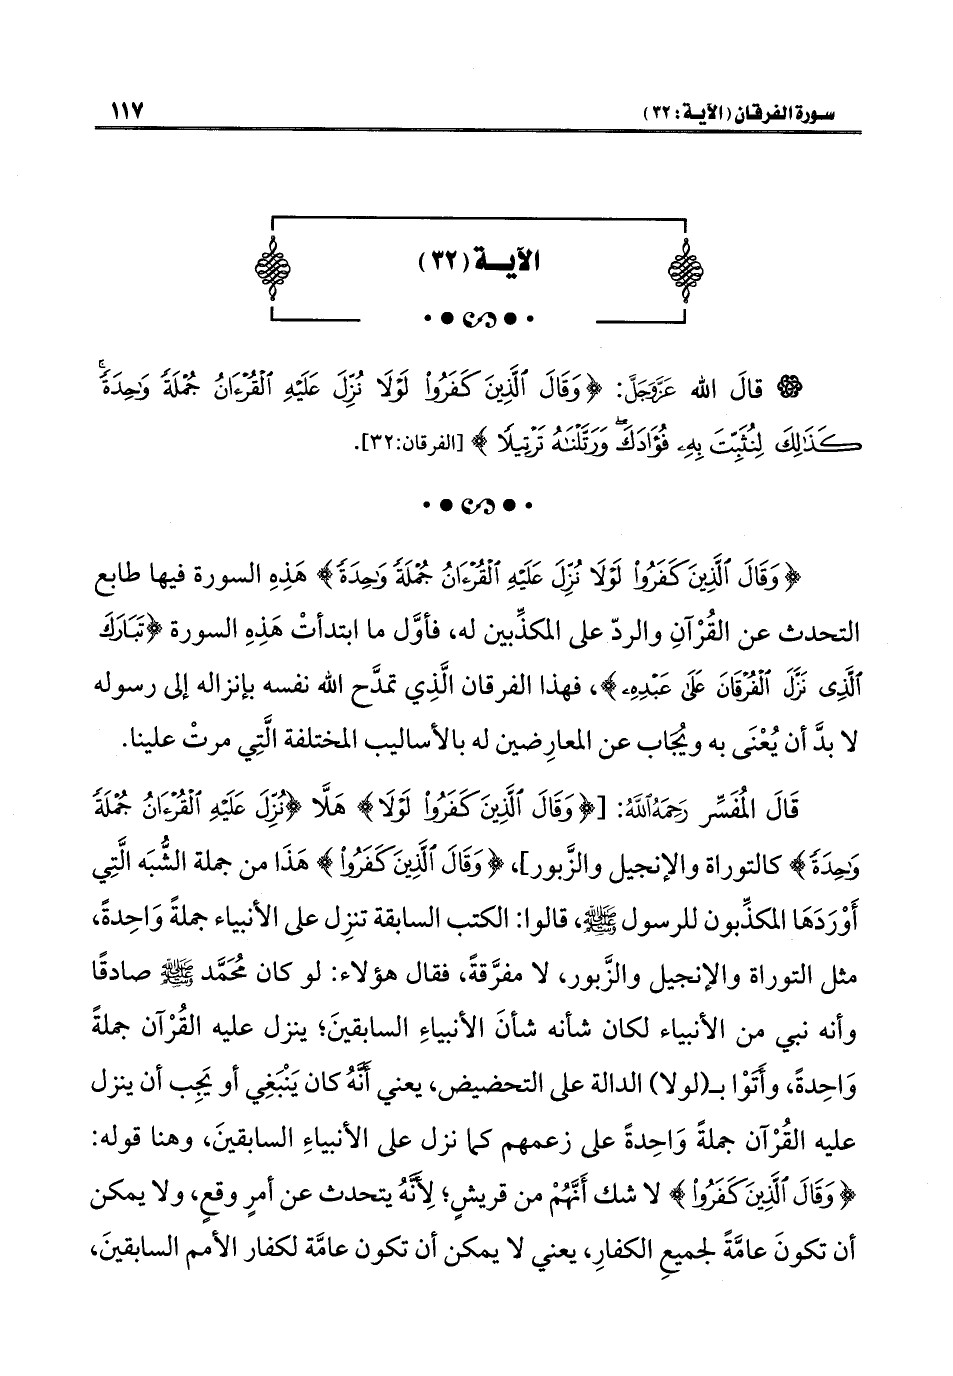 سورة الفرقان (الآية: ٣٢) ١١٧
الآية (٣٢)
قالَ الله عَزَّوَجَلَّ: ﴿وَقَالَ ٱلَّذِينَ كَفَرُوا۟ لَوْلَا نُزِّلَ عَلَيْهِ ٱلْقُرْءَانُ جُمْلَةً وَٰحِدَةً ۚ
كَذَٰلِكَ لِنُثَبِّتَ بِهِۦ فُؤَادَكَ ۖ وَرَتَّلْنَٰهُ تَرْتِيلًا﴾ [الفرقان:٣٢].
﴿وَقَالَ ٱلَّذِينَ كَفَرُوا۟ لَوْلَا نُزِّلَ عَلَيْهِ ٱلْقُرْءَانُ جُمْلَةً وَٰحِدَةً﴾ هَذِهِ السورة فيها طابع
التحدث عن القُرْآنِ والردّ على المكذِّبين له، فأوَّل ما ابتدأتْ هَذِهِ السورة ﴿تَبَارَكَ
ٱلَّذِى نَزَّلَ ٱلْفُرْقَانَ عَلَىٰ عَبْدِهِۦ﴾، فهذا الفرقان الَّذِي تمدَّح الله نفسه بإنزاله إلى رسوله
لا بدَّ أن يُعْنَى به ويُجَاب عن المعارِضين له بالأساليب المختلفة الَّتِي مرتْ علينا.
قَالَ المُفَسِّر رَحِمَهُ ٱللَّهُ: [﴿وَقَالَ ٱلَّذِينَ كَفَرُوا۟ لَوْلَا﴾ هَلَّا ﴿نُزِّلَ عَلَيْهِ ٱلْقُرْءَانُ جُمْلَةً
وَٰحِدَةً﴾ كالتوراة والإنجيل والزَّبور]، ﴿وَقَالَ ٱلَّذِينَ كَفَرُوا۟﴾ هَذَا من جملة الشُّبَه الَّتِي
أَوْرَدَهَا المكذِّبون للرسول ﷺ، قالوا: الكتب السابقة تنزِل على الأنبياء جملةً وَاحِدةً،
مثل التوراة والإنجيل والزَّبور، لا مفرَّقةً، فقال هؤلاء: لو كان مُحَمَّد ﷺ صادقًا
وأنه نبي من الأنبياء لكان شأنه شأنَ الأنبياءِ السابقينَ؛ ينزل عليه القُرْآن جملةً
وَاحِدةً، وأَتَوْا بـ(لولا) الدالة على التحضيض، يعني أَنَّهُ كان يَنْبَغِي أو يَجِب أن ينزل
عليه القُرْآن جملةً وَاحِدةً على زعمهم كما نزل على الأنبياءِ السابقينَ، وهنا قوله:
﴿وَقَالَ ٱلَّذِينَ كَفَرُوا۟﴾ لا شك أنَّهُمْ من قريشٍ؛ لِأَنَّهُ يتحدث عن أمرٍ وقع، ولا يمكن
أن تكونَ عامَّةً لجميعِ الكفارِ، يعني لا يمكن أن تكون عامَّة لكفار الأمم السابقينَ،